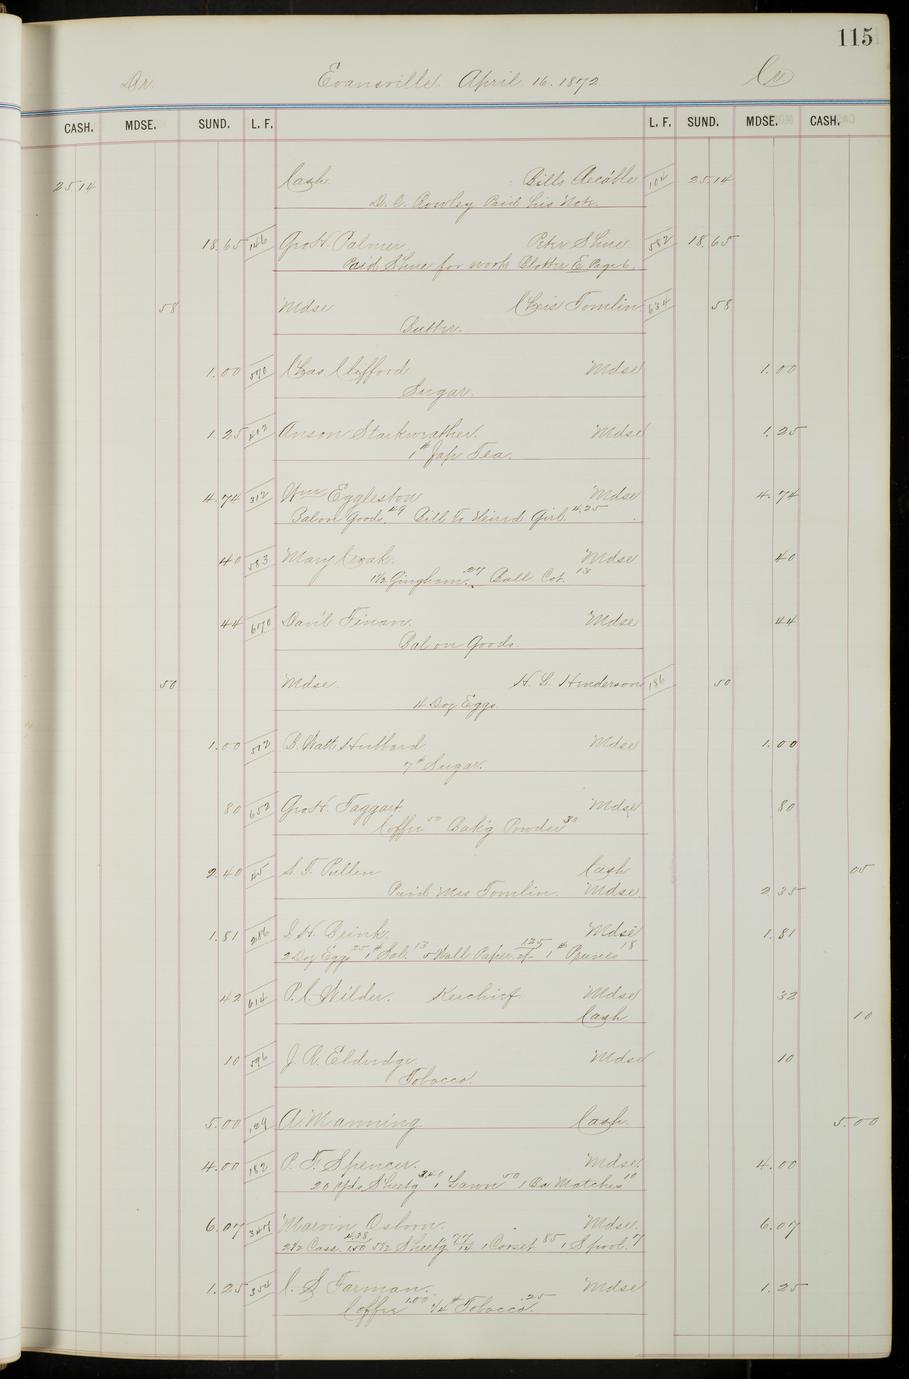 115
Dr. Evansville. April 16. 1872. Cr
CASH. MDSE. SUND. L. F. L. F. SUND. MDSE. CASH.
25.14 Cash Bills Recable 104 25.14
D. C. Rowley Paid his Note.
18.65 146 Geo H. Palmer. Peter Shue 582 18.65
Paid Shue for work Blotter E Page 6.
58 Mdse Chris Tomlin 634 58
Butter.
1.00 570 Chas. Clifford Mdse 1.00
Sugar.
1.25 402 Anson Starkwrather. Mdse 1.25
1# Jap Tea.
4.74 312 Wm Eggleston Mdse 4.74
Bal on Goods .49 Bill to Heired Girl 4.25
40 583 Mary Croak. Mdse 40
1 1/2 Gingham .27 Ball Cot. 13
44 Dan'l Finan. Mdse 44
Bal on Goods.
50 Mdse. H. G. Hinderson 186 50
4 Doz Eggs
1.00 512 B. Watt Hubbard. Mdse 1.00
7# Sugar.
80 652 Geo H. Taggart. Mdse 80
Coffee 50 Bak'g Powder 30
2.40 45 S. T. Pullen Cash 05
Paid Mrs Tomlin. Mdse 2 35
1.81 286 I. H. Brink. Mdse 1.81
2 Doz Eggs 25 1# Sal. 13 5 Wall Paper 25 1.25 1# Prunes 18
42 614 P. C. Wilder. Kerchief Mdse 32
Cash 10
10 596 J. R. Eldredge. Mdse 10
Tobacco.
5.00 129 A. Manning Cash 5.00
4.00 182 P. F. Spencer. Mdse. 4.00
20 yds Sheet'g 3.40 1 Lawn 50 1 Bx Matches 10
6.07 347 Marvin Osborn. Mdse. 6.07
2 1/2 Cass. 1.50 4.38 5 1/2 Sheet'g. 14 .77 1 Corset 85 1 Spool. 7
1.25 354 C. S. Farman. Mdse 1.25
Coffee 1.00 1/4# Tobacco. .25